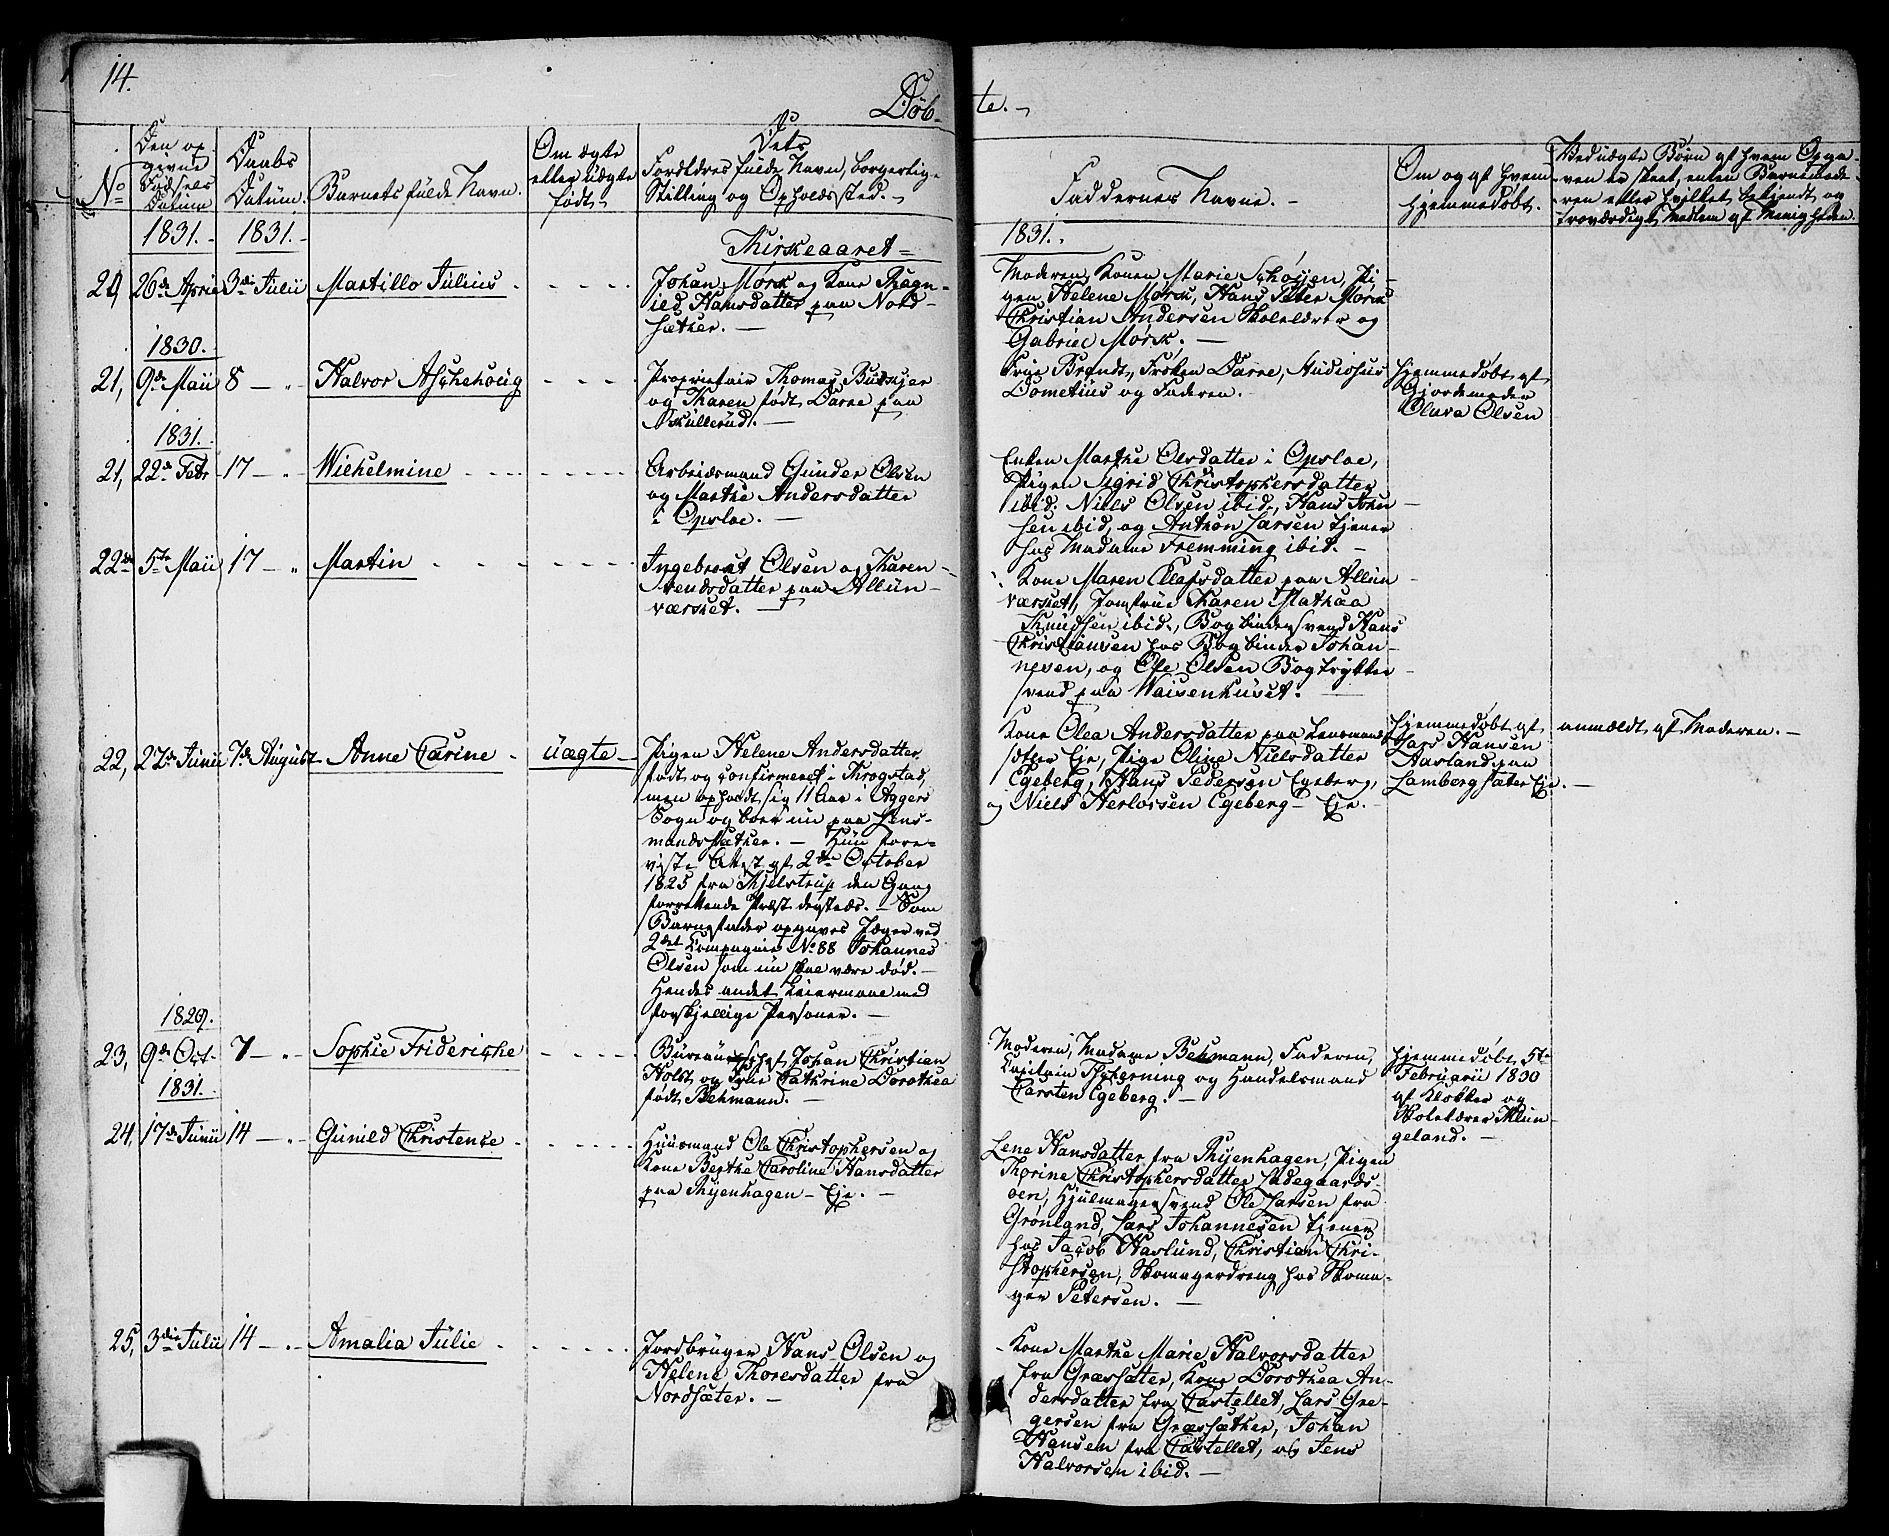 14.
Døb-
te.-
No
Den op-
givne
Fødsels
Datum
Daabs
Datum.
Barnets fulde Navn.
Om ægte
eller uægte
født.
Dets
Forældres fulde Navn, borgerlige
Stilling og Opholdssted.-
Faddernes Navne.-
Om og af hvem
hjemmedøbt.
Ved uægte Børn af hvem Opga-
ven er skeet, enten Barnemode-
ren eller hvilket bekjendt og
troværdigt Medlem af Menigheden.
1831.- 1831.-
Kirkeaaret
1831.
20, 26de April 3die Julii Martillo Julius
Johan Mørk og Kone Ragn-
ild Hansdatter paa Nord-
sæther.-
Moderen, Konen Marie Schøyen, Pi-
gen Helene Mørk, Hans Peter Mørk
Christian Andersen Skolelærer og
Gabriel Mørk.-
1830.
21, 9de Maii 8 - " Halvor Aschehoug
Proprietair Thomas
og Karen født Darre paa
Skullerud.-
Frue Brandt, Frøken Darre,
Dometius og Faderen.-
Hjemmedøbt af
Gjordemoder
Olava Olsen
1831.
21, 22de Febr 17 - " Wilhelmine
Arbeidsmand Gunder Olsen
og Marthe Andersdatter
i Opsloe.-
Enken Marthe Olsdatter i Opsloe,
Pigen Sigrid Christophersdatter
ibid. Niels Olsen ibid., Hans John-
sen ibid, og Anthon Larsen tjener
hos Madame Fremming ibid.-
22de 5te Maii 17 - " Martin
Ingebrout Olsen og Karen
Svendsdatter paa Allun-
værket.-
Kone Maren Olafsdatter paa Allun-
værket, Jomfrue Karen Mathea
Knudsen ibid., Bogbindersvend Hans
Christiansen hos Bogbinder Johan-
nesen, og Ole Olsen Bogtrykker
svend paa Waisenhuset.-
22, 27de Junii 7de August Anne Carine uægte
Pigen Helene Andersdatter
født og confirmeret i Throgstad,
men opholdt sig 11 Aar i Aggers
Sogn og boer nu paa Lens-
mandssæther.- Hun fore-
viste Attest af 2den October
1825 fra Kjelstrup den Gang
forrettende Præst dersteds.- Som
Barnefader opgaves Jæger ved
2det Compagnie No 88 Johannes
Olsen som nu skal være død.-
Hendes andet Leiermaal med
forskjellige Personer.-
Kone Olea Andersdatter paa Lensmands
sæther Eje, Pige Oline Nielsdatter
Egeberg, Hans Pedersen Egeberg,
og Niels Herlofsen Egeberg- Eje.-
Hjemmedøbt af
Lars Hansen
Aasland paa
Lambergsæter Eje.-
anmældt af Moderen.-
1829.
23, 9de Oct. 7 - " Sophie Friderische
Bureauchef, Johan Christian
Holst og Frue Cathrine Dorothea
født Behmann.-
Moderen, Madame Behmann, Faderen,
Capitain og Handelsmand
Carsten Egeberg.-
Hjemmedøbt 5te
Februarii 1830
af Klokker og
Skolelærer Klün-
geland.-
1831.
24, 17de Junii 14 - " Gunild Christence
Huusmand Ole Christophersen og
Kone Berthe Caroline Hansdatter
paa Ryenhagen- Eje.-
Lene Hansdatter fra Ryenhagen, Pigen
Thorine Christophersdatter Ladegaards-
øen, Hjulmagersvend Ole Larsen fra
Grønland, Lars Johannesen tjener
hos Jacob Haslund, Christian Chri-
stophersen, Skomagerdreng hos Skoma-
ger Petersen.-
25, 3die Julii 14 - " Amalia Julie
Jordbruger Hans Olsen og
Helene Thoresdatter fra
Nordsæter.-
Kone Marthe Marie Halvorsdatter
fra Græssæter, Kone Dorothea An-
dersdatter fra Castellet, Lars Gre-
gersen fra Græssæther, Johan
Hansen fra Castellet, og Jens
Halvorsen ibid.-